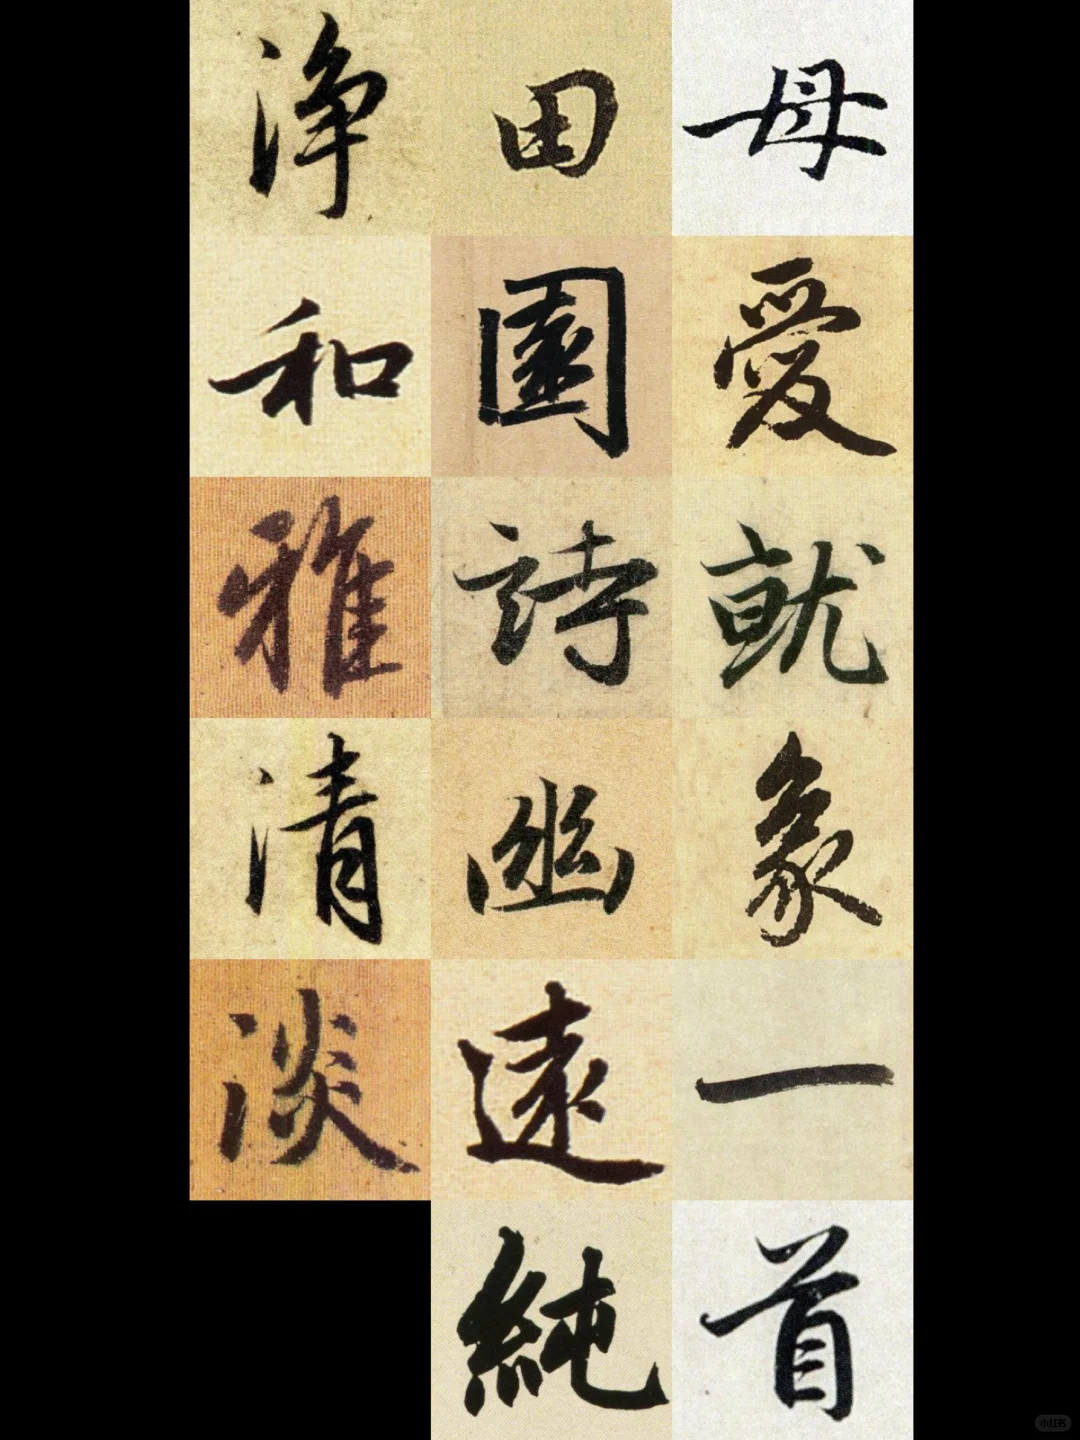 母愛就象一首
田園詩幽遠純
淨和雅清淡
小红书